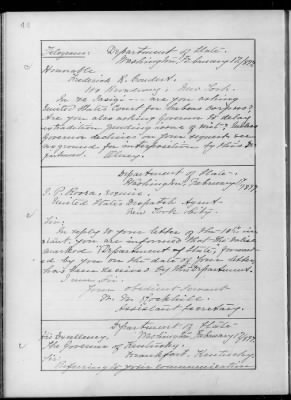 Telegram. Department of State.
Washington, February 17, 1897
Honorable
Frederick R. Coudert,
New York.
In re Insigi -- are you asking
United States Court for habeas corpus?
Are you also asking Governor to delay
extradition pending issue of writ? Unless
Governor declines on your request see
no ground for interposition by this De-
partment. Olney.
Department of State.
Washington, February 17, 1897.
I. P. Roosa, Esquire,
United States Despatch Agent
New York City.
Sir:
In reply to your letter of the 16th in-
stant. You are informed that the
marked "Department of State,"
ed by you on the date of your letter,
has been received by this Department.
I am, Sir,
Your obedient servant
W. W. Rockhill,
Assistant Secretary.
Department of State
His Excellency, Washington, February 17, 1897
The Governor of Kentucky,
Frankfort, Kentucky.
Sir:
Referring to your communication